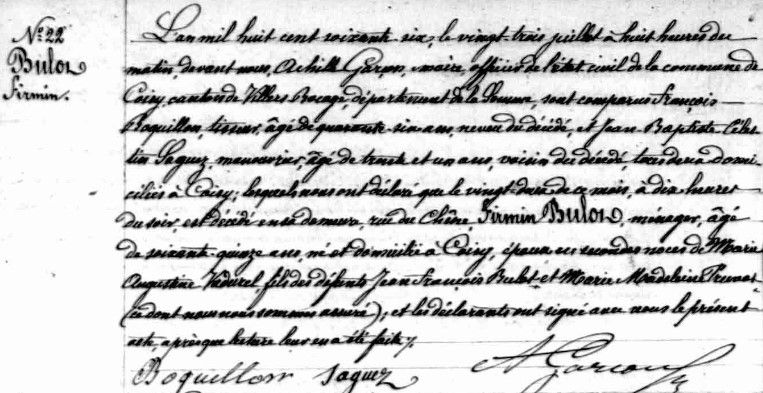 N.º 22
Bulot
Firmin.
L'an mil huit cent soixante six, le vingt-trois juillet à huit heures du
matin, devant nous, Achille Garçon, maire, officier de l'état civil de la commune de
Coisy, canton de Villers Bocage, département de la Somme, sont comparus François
Boquillon, tisseur, âgé de quarante six ans, neveu du décédé, et Jean Baptiste Céles-
tin Saguez, manouvrier, âgé de trente et un ans, voisin du décédé, tous deux domi-
ciliés à Coisy; lesquels nous ont déclaré que le vingt-deux de ce mois, à dix heures
du soir, est décédé en sa demeure, rue du Chêne, Firmin Bulot, ménager, âgé
de soixante quinze ans, né et domicilié à Coisy, époux en secondes noces de Marie
Augustine Vadurel fils des défunts Jean François Bulot et Marie Madeleine
(ce dont nous nous sommes assuré); et les déclarants ont signé avec nous le présent
acte, après que lecture leur en a été faite.
Boquillon Saguez A Garçon